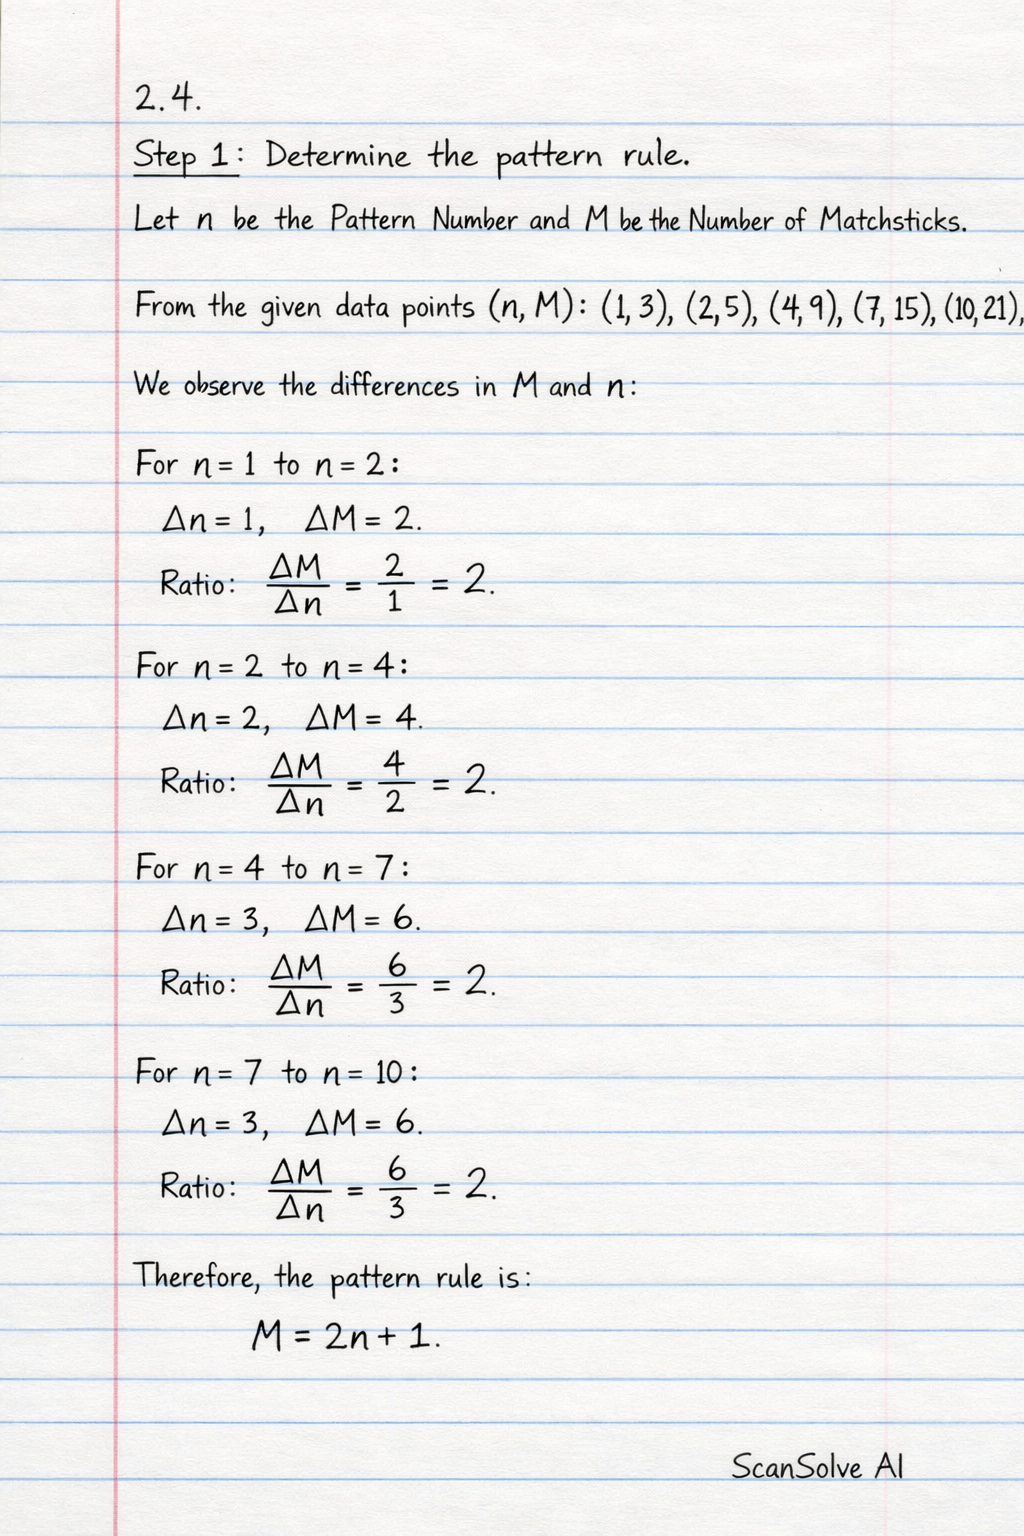 2.4.
Step 1: Determine the pattern rule.
Let n be the Pattern Number and M be the Number of Matchsticks.
From the given data points (n, M): (1, 3), (2, 5), (4, 9), (7, 15), (10, 21),
We observe the differences in M and n:
For n = 1 to n = 2:
Δn = 1, ΔM = 2.
Ratio: ΔM/Δn = 2/1 = 2.
For n = 2 to n = 4:
Δn = 2, ΔM = 4.
Ratio: ΔM/Δn = 4/2 = 2.
For n = 4 to n = 7:
Δn = 3, ΔM = 6.
Ratio: ΔM/Δn = 6/3 = 2.
For n = 7 to n = 10:
Δn = 3, ΔM = 6.
Ratio: ΔM/Δn = 6/3 = 2.
Therefore, the pattern rule is:
M = 2n + 1.
ScanSolve AI